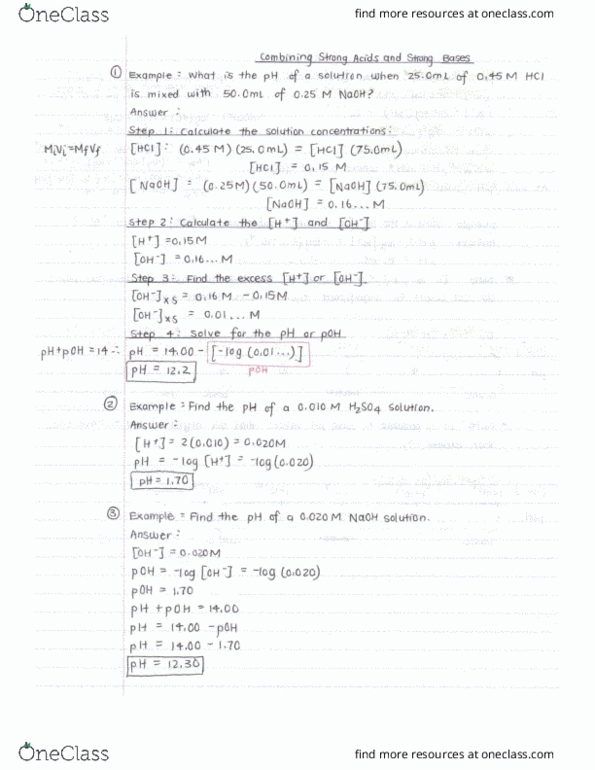 OneClass
find more resources at oneclass.com
Combining Strong Acids and Strong Bases
① Example: What is the pH of a solution when 25.0mL of 0.45 M HCl
is mixed with 50.0mL of 0.25 M NaOH?
Answer:
Step 1: Calculate the solution concentrations:
MiVi=MfVf [HCl]: (0.45 M)(25.0mL) = [HCl](75.0mL)
[HCl] = 0.15 M
[NaOH] = (0.25M)(50.0mL) = [NaOH](75.0mL)
[NaOH] = 0.16... M
Step 2: Calculate the [H⁺] and [OH⁻]
[H⁺] = 0.15M
[OH⁻] = 0.16... M
Step 3: Find the excess [H⁺] or [OH⁻].
[OH⁻]xs = 0.16 M - 0.15M
[OH⁻]xs = 0.01... M
Step 4: Solve for the pH or pOH
pH+pOH = 14 ∴ pH = 14.00 - [-log (0.01...)]
pH = 12.2 pOH
② Example: Find the pH of a 0.010 M H₂SO₄ solution.
Answer:
[H⁺] = 2(0.010) = 0.020M
pH = -log [H⁺] = -log(0.020)
pH = 1.70
③ Example: Find the pH of a 0.020 M NaOH solution.
Answer:
[OH⁻] = 0.020M
pOH = -log [OH⁻] = -log (0.020)
pOH = 1.70
pH + pOH = 14.00
pH = 14.00 - pOH
pH = 14.00 - 1.70
pH = 12.30
OneClass
find more resources at oneclass.com